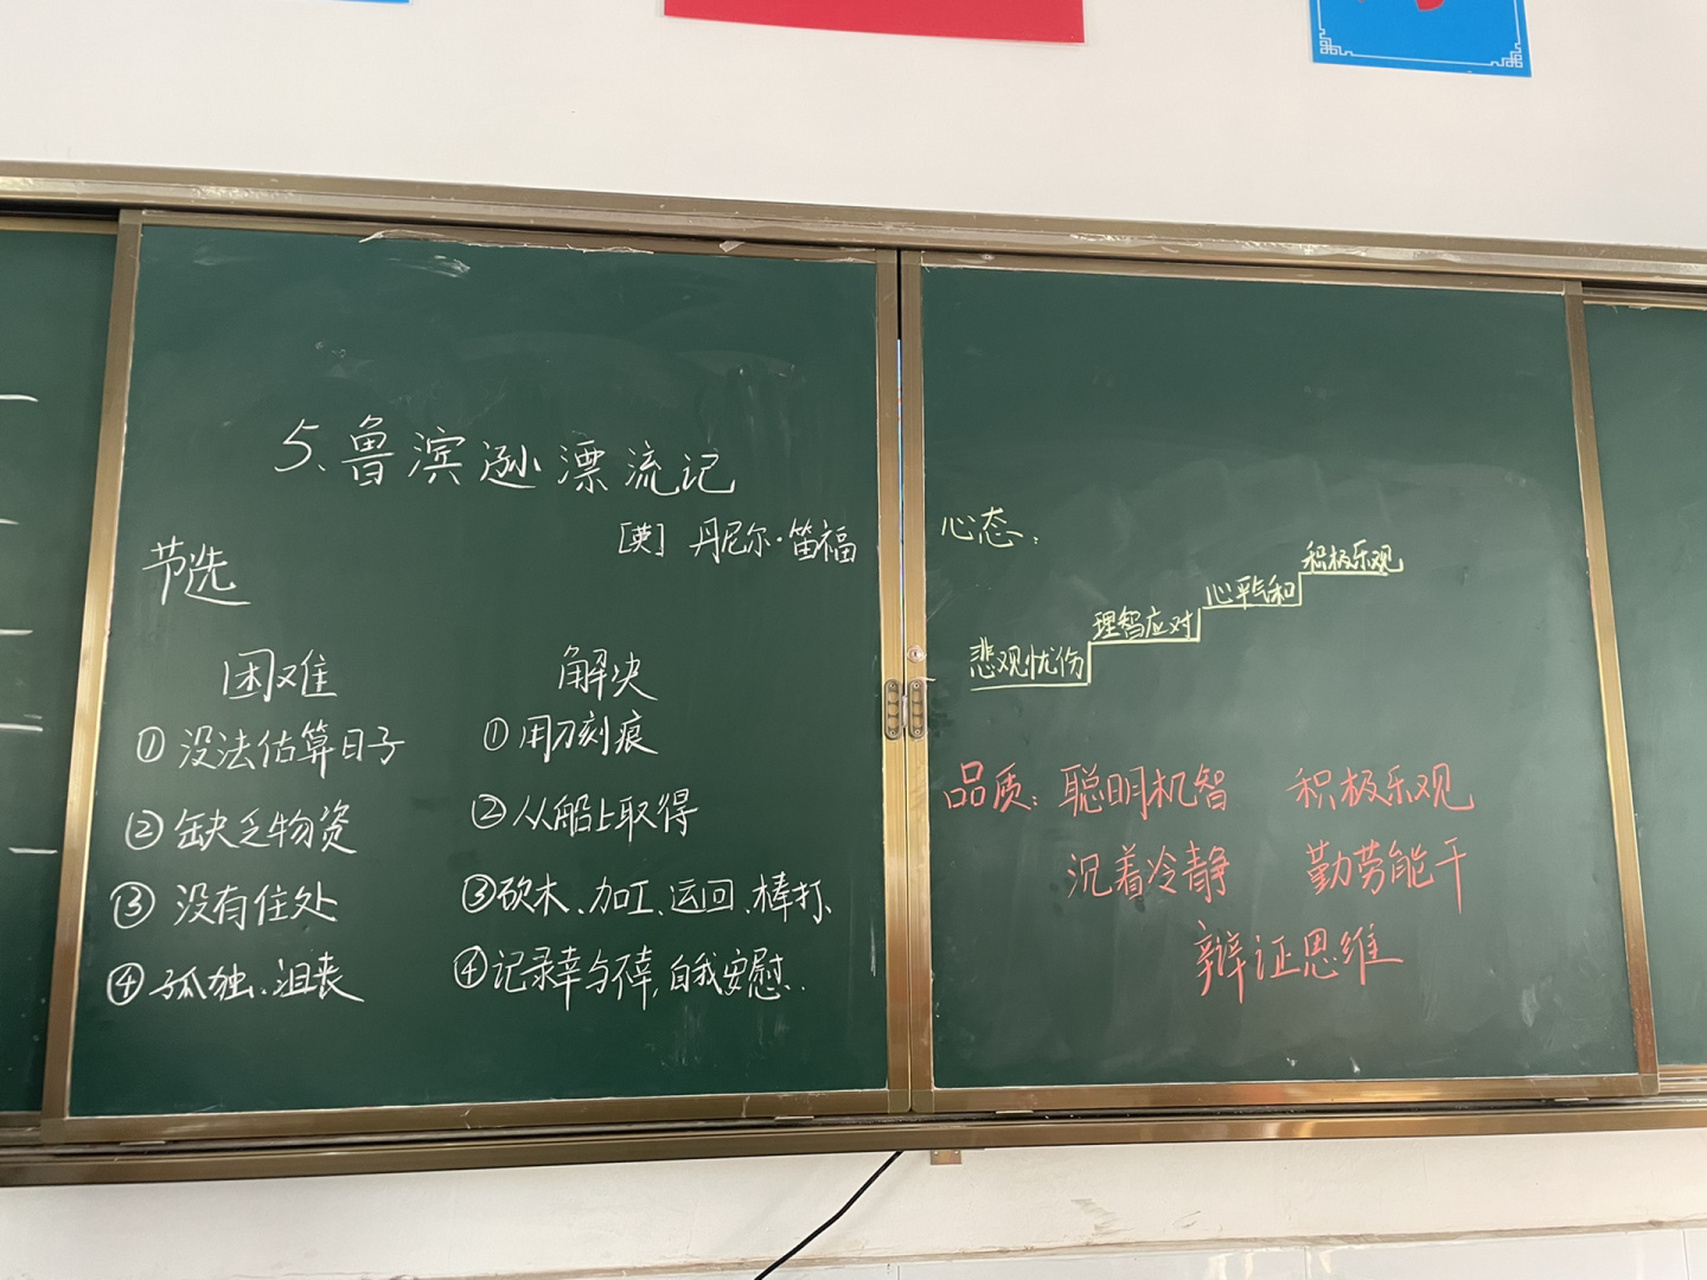 5.鲁滨逊漂流记
[英] 丹尼尔·笛福
节选
困难 解决
①没法估算日子 ①用刀刻痕
②缺乏物资 ②从船上取得
③没有住处 ③砍木、加工、运回、棒打、
④孤独.沮丧 ④记录幸与不幸,自我安慰..
心态:
积极乐观
心平气和
理智应对
悲观忧伤
品质:聪明机智 积极乐观
沉着冷静 勤劳能干
辩证思维